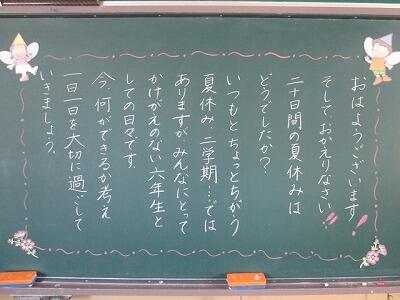 おはようございます!
そして、おかえりなさい!!
二十日間の夏休みは
どうでしたか?
いつもとちょっとちがう
夏休み・二学期…では
ありますが、みんなにとって
かけがえのない六年生と
しての日々です。
今、何ができるか考え
一日一日を大切に過ごして
いきましょう。